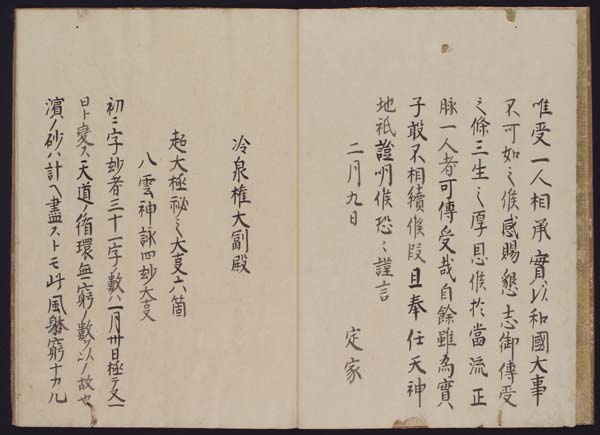 唯受一人相承實以和國大事
不可如之候感賜懇志御傳受
之條三生之厚恩候於當流正
脉一人者可傳受哉自餘雖為實
子敢不相續候段且奉任天神
地祇證明候恐〻謹言
二月九日
定家
冷泉権大副殿
超大極祕之大事六箇
八雲神詠四妙大事
初ニ字妙者三十一字ノ數ハ一月卅日極テ又一
日ト変ス天道ノ循環無窮ノ數ヲ以ノ故也
濱ノ砂ハ計ヘ盡ストモ此風躰窮ナカル